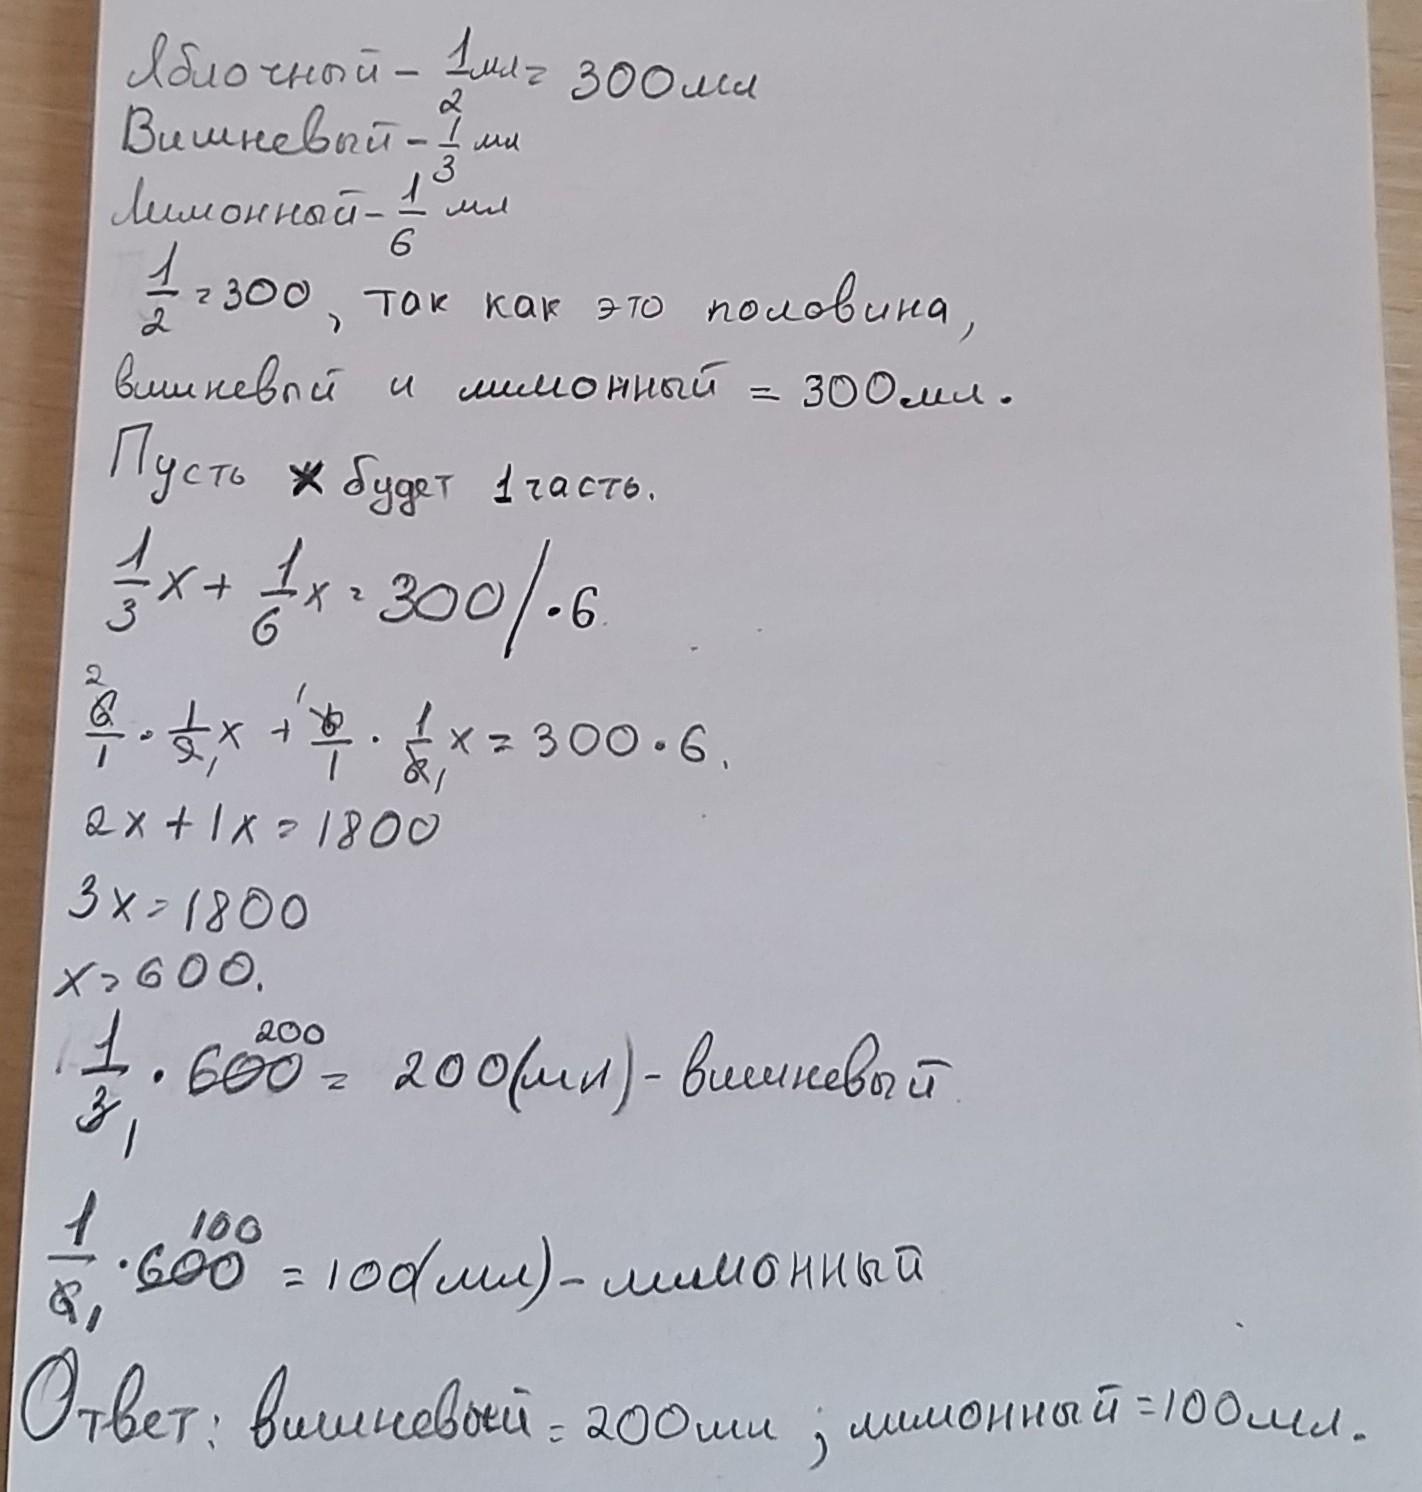 Яблочный - 1/2 мл = 300мл
Вишневый - 1/3 мл
Лимонный - 1/6 мл
1/2 = 300, так как это половина,
вишневый и лимонный = 300мл.
Пусть x будет 1 часть.
1/3 x + 1/6 x = 300 / · 6
6/1 · 1/3 x + 6/1 · 1/6 x = 300 · 6.
2x + 1x = 1800
3x = 1800
x = 600.
1/3 · 600 = 200(мл) - вишневый
1/6 · 600 = 100(мл) - лимонный
Ответ: вишневый = 200мл ; лимонный = 100мл.